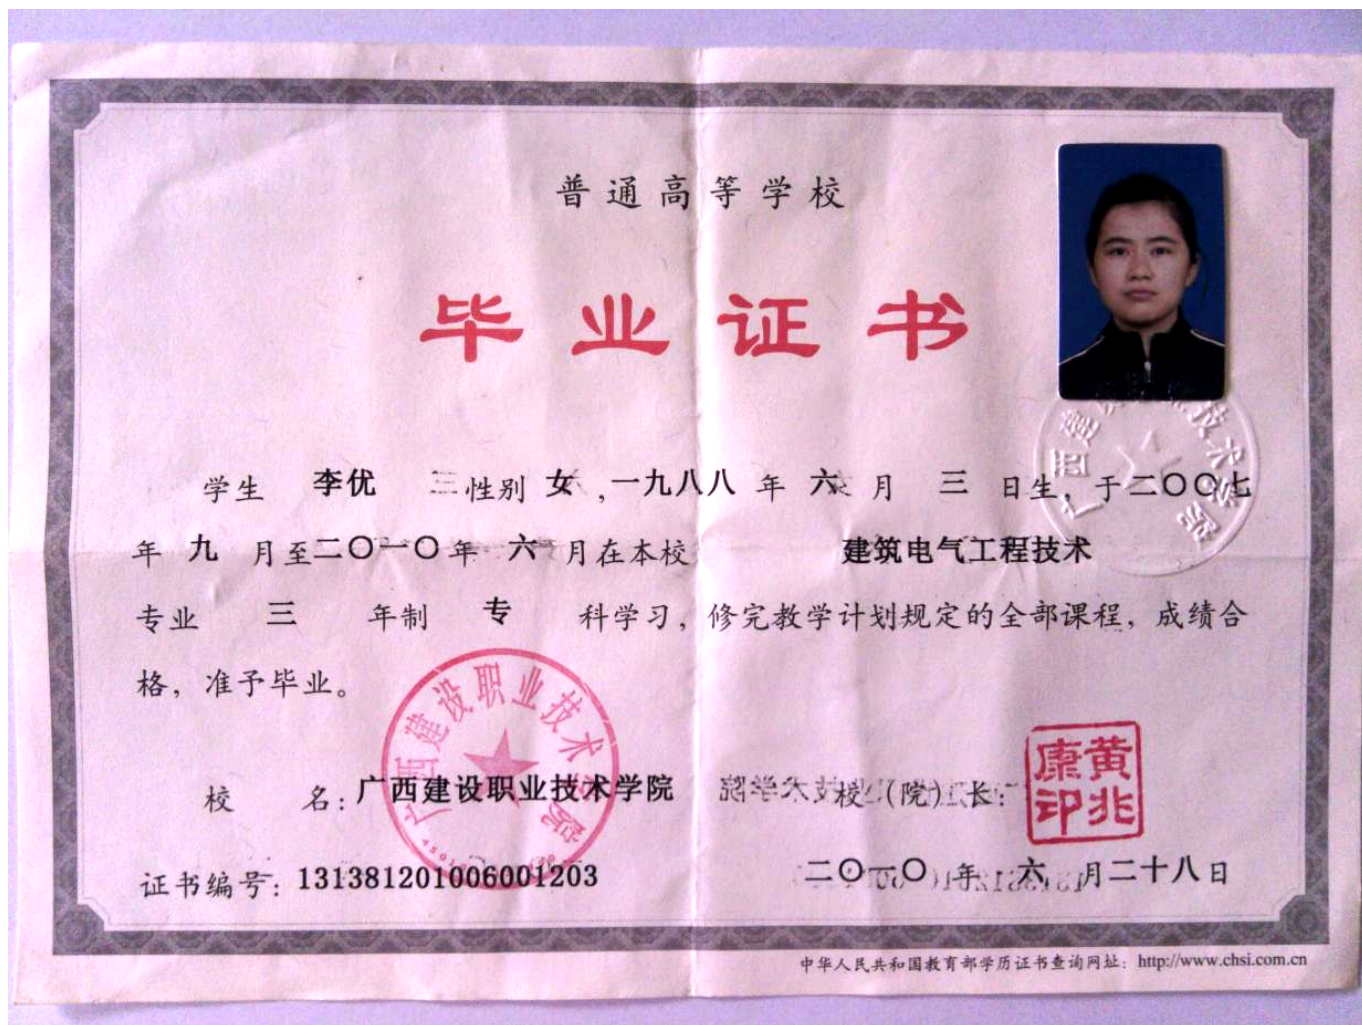 普通高等学校
毕业证书
学生 李优 性别 女 ,一九八八 年 六 月 三 日生，于二〇〇七
年 九 月至二〇一〇年 六 月在本校 建筑电气工程技术
专业 三 年制 专 科学习，修完教学计划规定的全部课程，成绩合
格，准予毕业。
广西建设职业技术学院
广西建设职业技术学院
校 名：广西建设职业技术学院 校（院）长：
黄兆康印
证书编号：131381201006001203 二〇一〇年 六 月二十八日
中华人民共和国教育部学历证书查询网址：http://www.chsi.com.cn